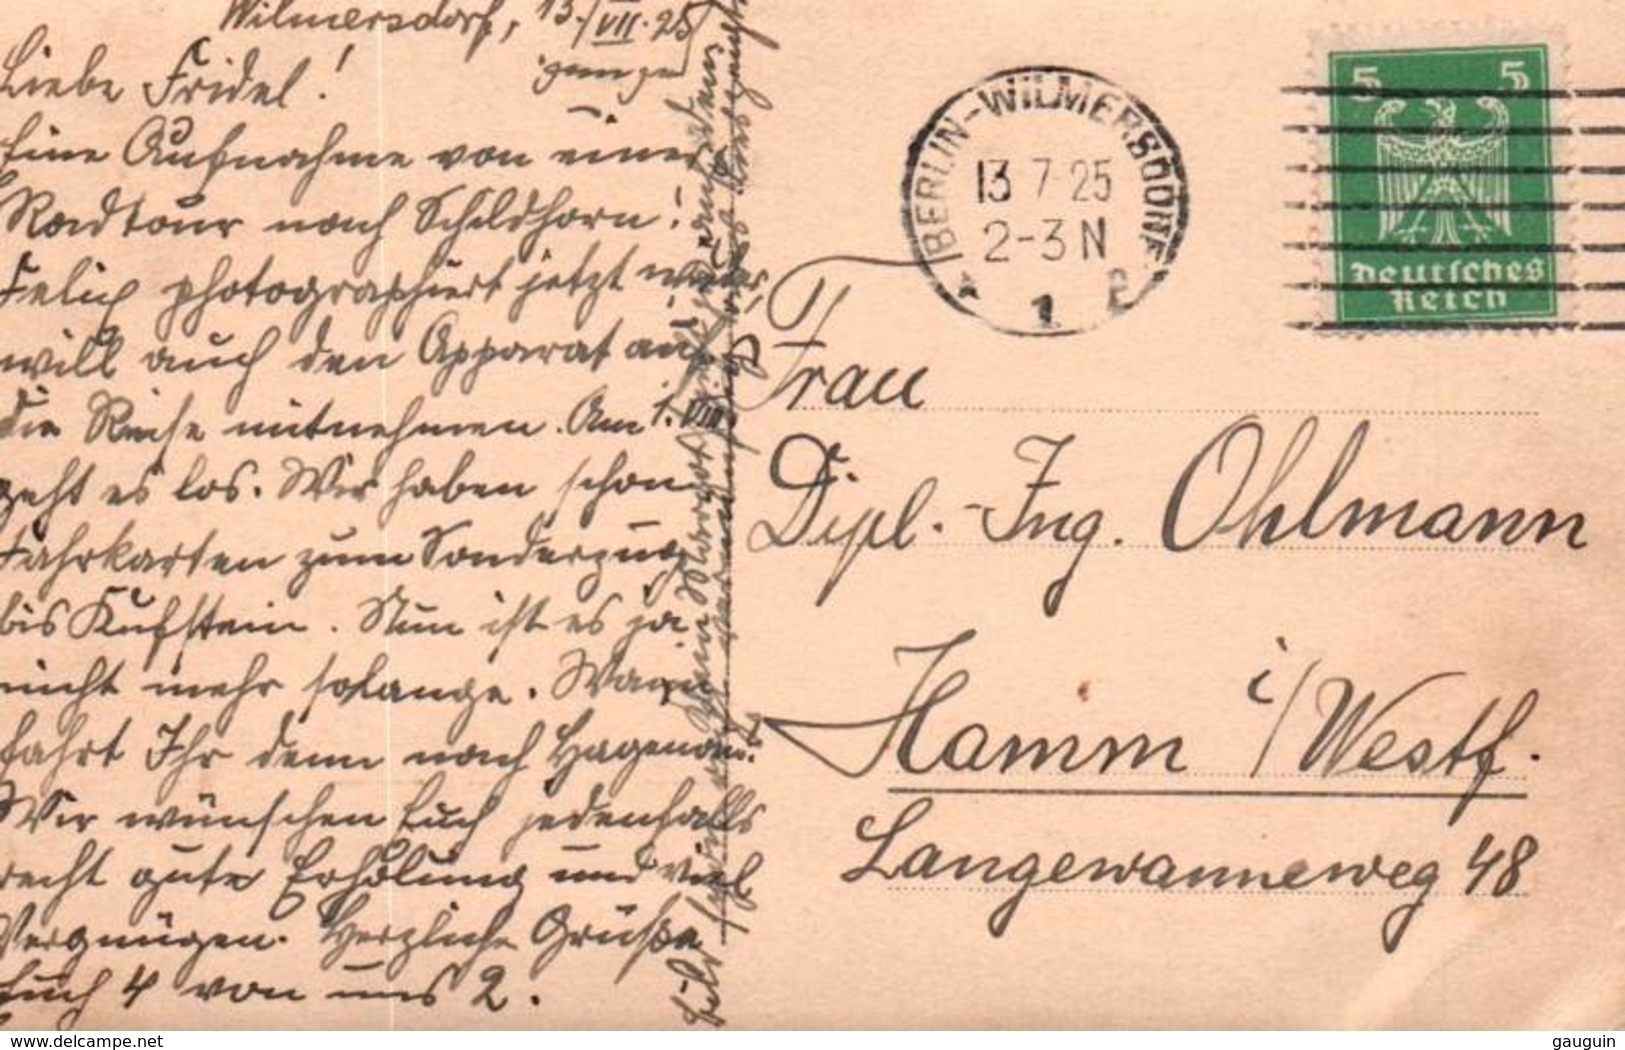 Wilmersdorf, 13./VII.25
Liebe Fridel!
Eine Aufnahme von einer
Radtour nach Schildhorn!
Felix photographiert jetzt wieder,
will auch den Apparat auf
die Reise mitnehmen. Am 1. VIII.
geht es los. Wir haben schon
Fahrkarten zum Sonderzug
bis Kufstein. Nun ist es ja
nicht mehr solange. Wann
fahrt Ihr denn nach Hagenow?
Wir wünschen Euch jedenfalls
recht gute Erholung und viel
Vergnügen. Herzliche Grüsse
Euch 4 von uns 2.
BERLIN-WILMERSDORF
13 7 25
2-3 N
* 1
5 5
Deutsches
Reich
Frau
Dipl.-Ing. Ohlmann
Hamm i/Westf.
Langewanneweg 48
gauguin
delcampe.net